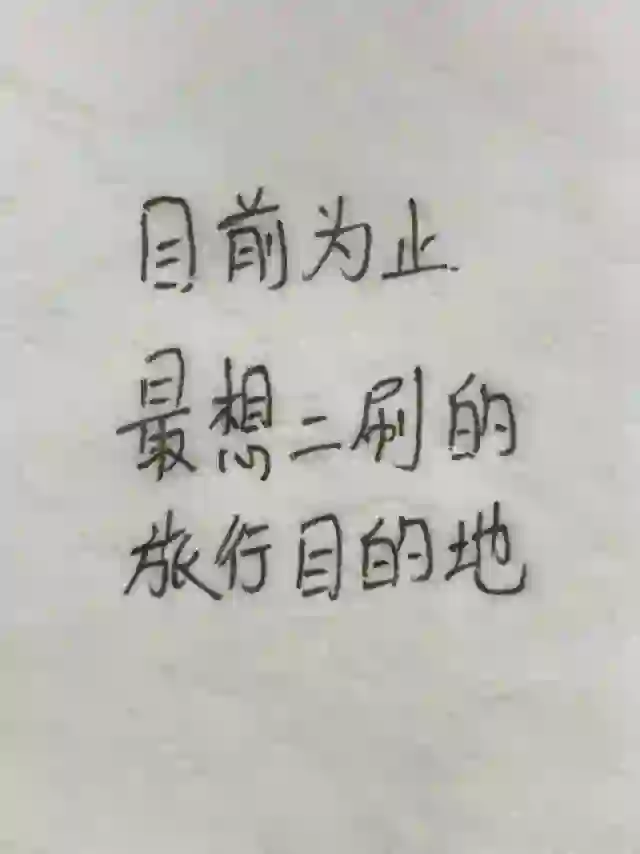 目前为止
最想二刷的
旅行目的地